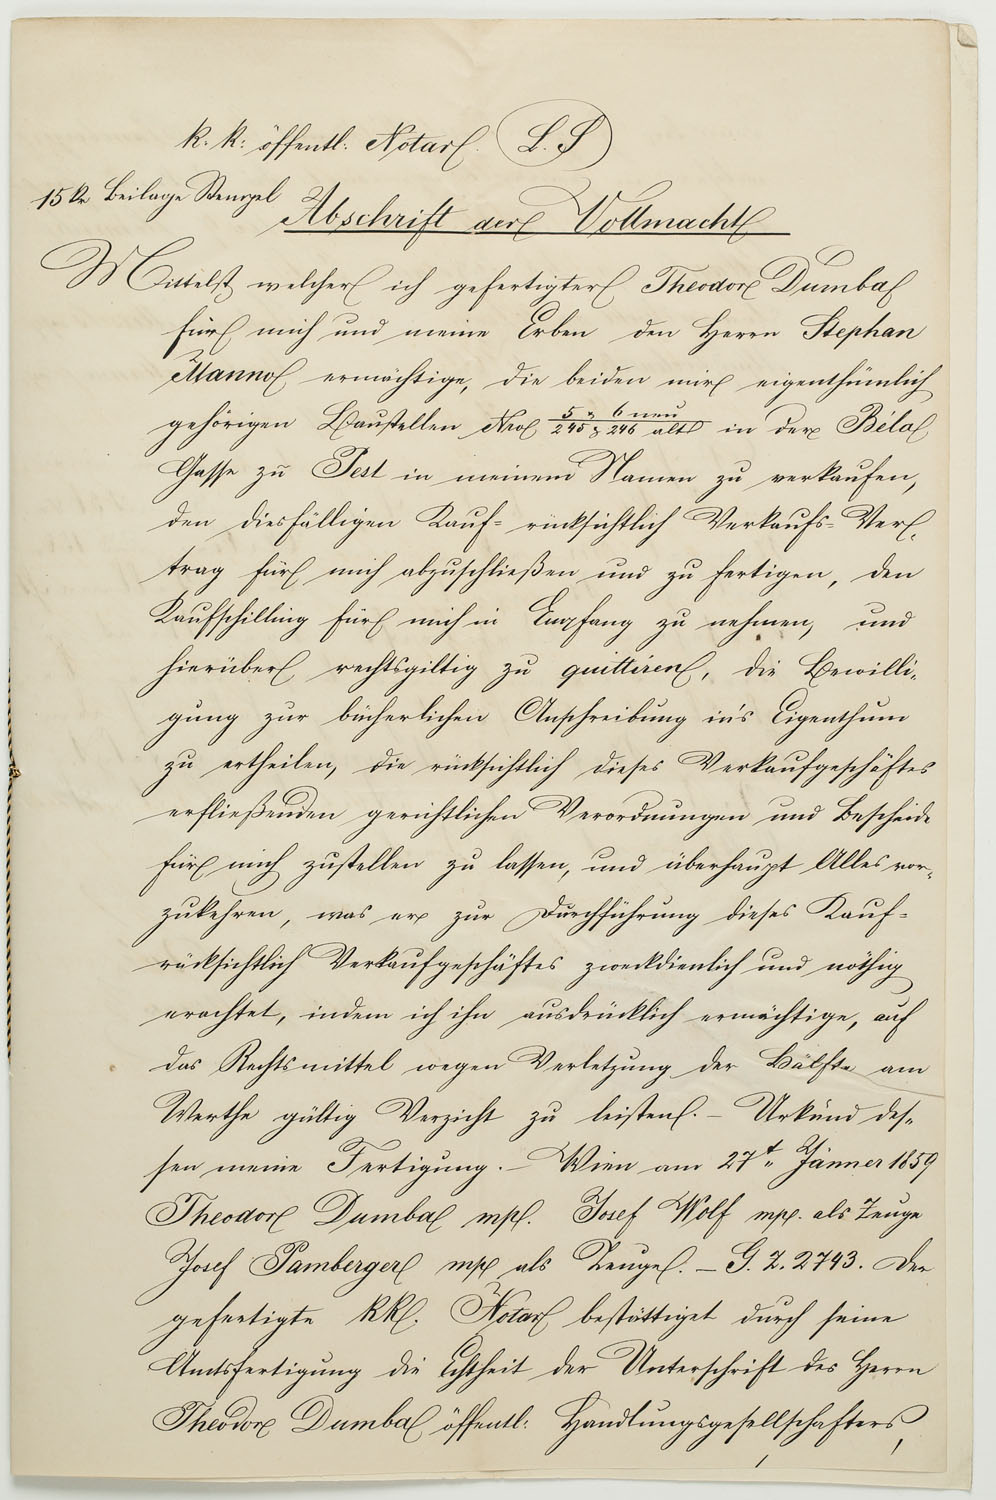 k. k: öffentl: Notar. L. S
15 kr Beilage Stempel
Abschrift der Vollmacht
Mittelst welcher ich gefertigter Theodor Dumba
für mich und meine Erben den Herrn Stephan
Manno ermächtige, die beiden mir eigenthümlich
gehörigen Baustellen Nro 5 & 6 neu / 245 & 246 alt in der Béla
Gasse zu Pest in meinem Namen zu verkaufen,
den diesfälligen Kauf= rücksichtlich Verkaufs=Ver=
trag für mich abzuschließen und zu fertigen, den
Kaufschilling für mich in Empfang zu nehmen, und
hierüber rechtsgiltig zu quittiren, die Bewilli=
gung zur bücherlichen Anschreibung in's Eigenthum
zu ertheilen, die rücksichtlich dieses Verkaufgeschäftes
erfließenden gerichtlichen Verordnungen und Bescheide
für mich zustellen zu lassen, und überhaupt Alles vor=
zukehren, was er zur Durchführung dieses Kauf=
rücksichtlich Verkaufgeschäftes zweckdienlich und nöthig
erachtet, indem ich ihn ausdrücklich ermächtige, auf
das Rechtsmittel wegen Verletzung der Hälfte am
Werthe gültig Verzicht zu leisten. – Urkund des=
sen meine Fertigung. – Wien am 27t. Jänner 1859
Theodor Dumba mp. Josef Wolf mp. als Zeuge
Josef Pamberger mp als Zeuge. – G. Z. 2743. Der
gefertigte kk. Notar bestättiget durch seine
Amtsfertigung die Echtheit der Unterschrift des Herrn
Theodor Dumba öffentl: Handlungsgesellschafters,